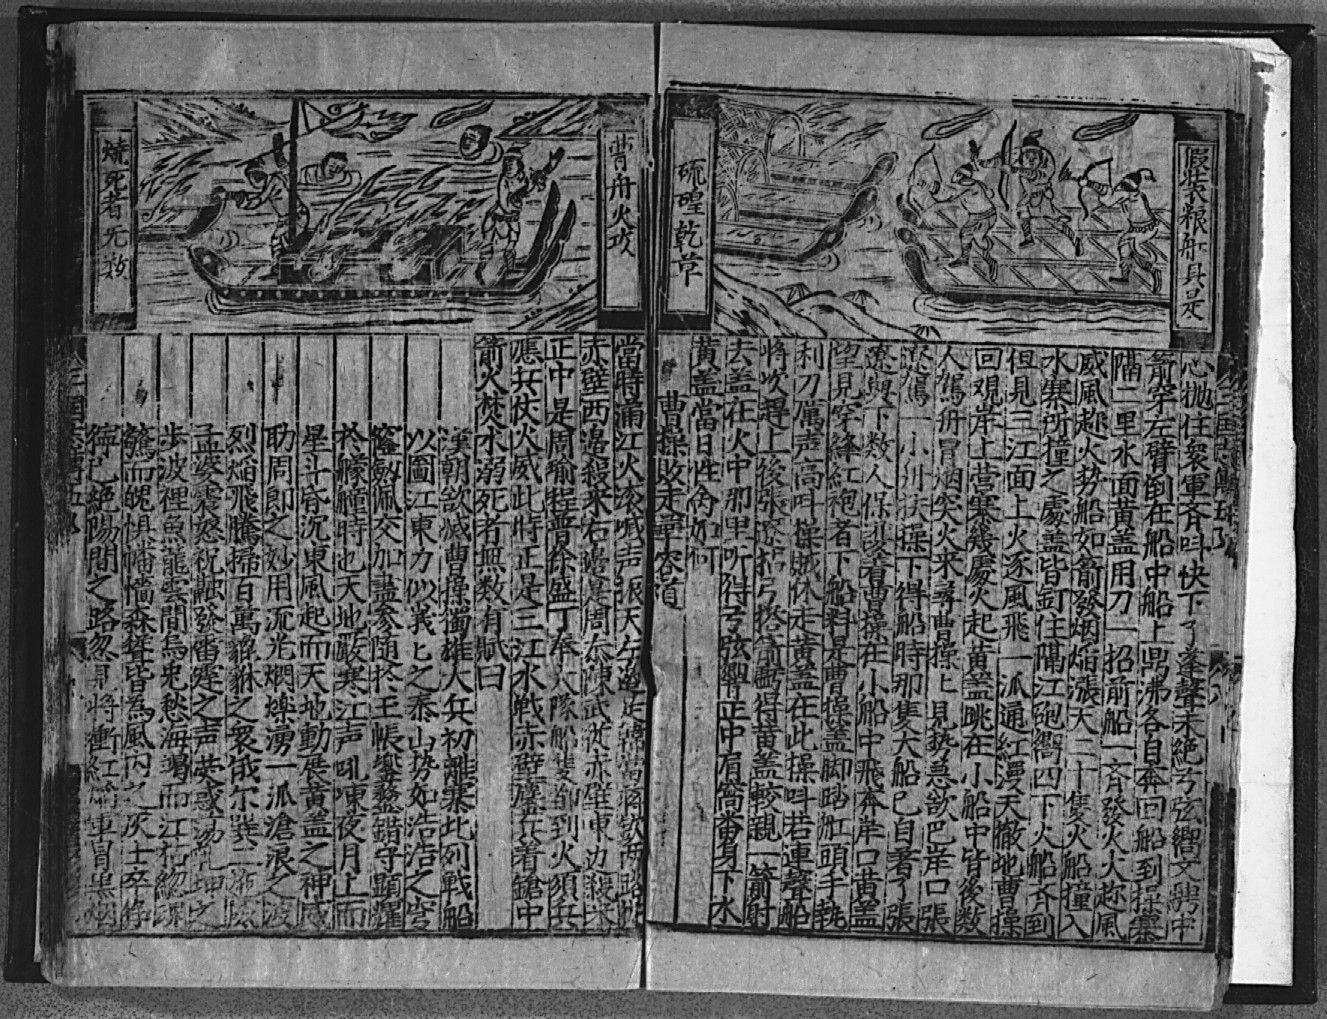 假裝粮船具是
硫磺乾草
心抛住衆軍齐呌快下了蓬聲未絕弓弦響文聘中
箭穿左臂倒在船中船上鼎沸各自奔回船到操寨
隔二里水面黄盖用刀一招前船一齐發火火趂風
威風趂火势船如箭發烟焰漲天二十隻火船撞入
水寨所撞之處盖皆釘住隔江砲響四下火船齐到
但見三江面上火逐風飛一派通紅漫天徹地曹操
回观岸上营寨幾處火起黄盖跳在小船中皆後数
人駕舟冒烟突火来尋曹操上見势急欲巴岸口張
遼駕一小舟扶操下得船時那隻大船已自著了張
遼與下数人保護着曹操在小船中飛奔岸口黄盖
望見穿絳紅袍者下船料是曹操盖脚踏舡頭手執
利刀厲声高呌操贼休走黄盖在此操呌若連聲船
將次趕上後張遼拈弓搭箭觑得黄盖較親一箭射
去盖在火中那里听得弓弦響正中肩窩畨身下水
黄盖當日性命如何
曹操敗走華容道
曹舟火攻
燒死者无数
當時滿江火滚喊声振天左邉是韓當蒋欽两路
赤壁西邉殺来右邉是周泰陳武從赤壁東边殺来
正中是周瑜程普徐盛丁奉大隊船隻都到火須兵
應兵仗火威此時正是三江水戰赤壁鏖兵着鎗中
箭火焚水溺死者無数有賦曰
漢朝欲滅曹操獨雄大兵初離寨北列戰船
以圖江東力似峩匕之泰山势如浩浩之穹
簦劔佩交加盡参随扵王帳鍪錯守顕耀
扵艨艟時也天地嚴寒江声吼凍夜月上而
星斗昏沉東風起而天地動展黄盖之神威
助周郎之妙用流光燜爍湧一派滄浪之波
烈焰飛騰掃百萬貔貅之衆俄尔
孟婆震怒祝融發雷霆之声熒惑
步波裡魚龍雲間烏兎愁海竭而江枯
驚而魄惧幡幢森聳皆為風内之灰士卒
絕陽間之路忽見將衝紅焰軍冒黒烟